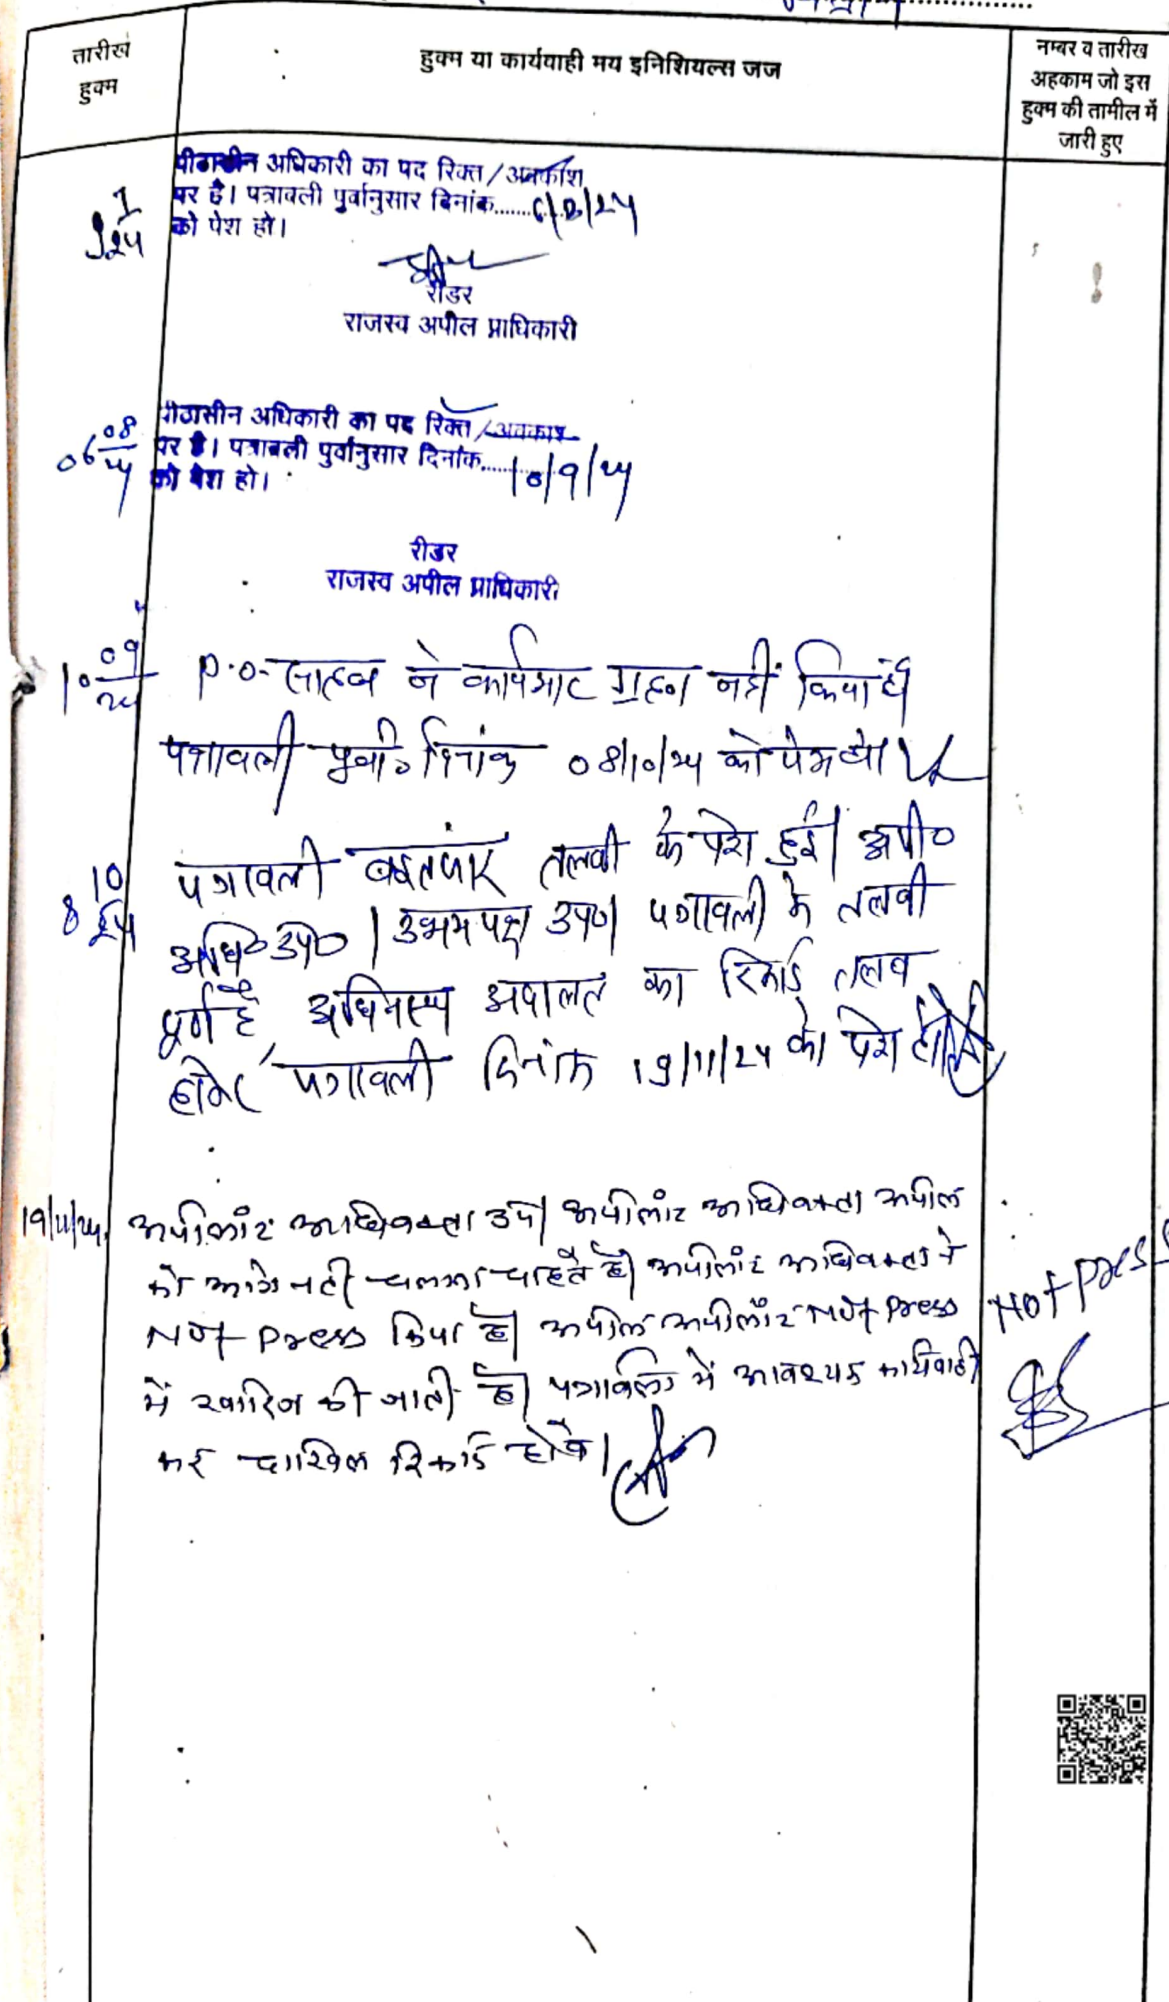 तारीख
हुक्म
हुक्म या कार्यवाही मय इनिशियल्स जज
नम्बर व तारीख
अहकाम जो इस
हुक्म की तामील में
जारी हुए
पीठासीन अधिकारी का पद रिक्त/अवकाश
पर है। पत्रावली पुर्वानुसार दिनांक.......6/8/24
को पेश हो।
रीडर
राजस्व अपील प्राधिकारी
06 08/24
पीठासीन अधिकारी का पद रिक्त/अवकाश
पर है। पत्रावली पुर्वानुसार दिनांक.......10/9/24
को पेश हो।
रीडर
राजस्व अपील प्राधिकारी
10 09/24
P.O. साहब ने कार्यभार ग्रहण नहीं किया है
पत्रावली पूर्वा० दिनांक 08/10/24 को पेश हो।
8 10/24
पत्रावली तलबी के पेश हुई। अपी०
अधि० उप०। उभयपक्ष उप०। पत्रावली के तलबी
पूर्ण है, अधिनस्थ अदालत का रिकार्ड तलब
होवे, पत्रावली दिनांक 19/11/24 को पेश होवे।
19/11/24.
अपीलांट अधिवक्ता उप। अपीलांट अधिवक्ता अपील
को आगे नही चलाना चाहते है। अपीलांट अधिवक्ता ने
Not press किया है। अपील अपीलांट Not press
में खारिज की जाती है। पत्रावली में आवश्यक कार्यवाही
कर दाखिल रिकार्ड होवे।
Not press